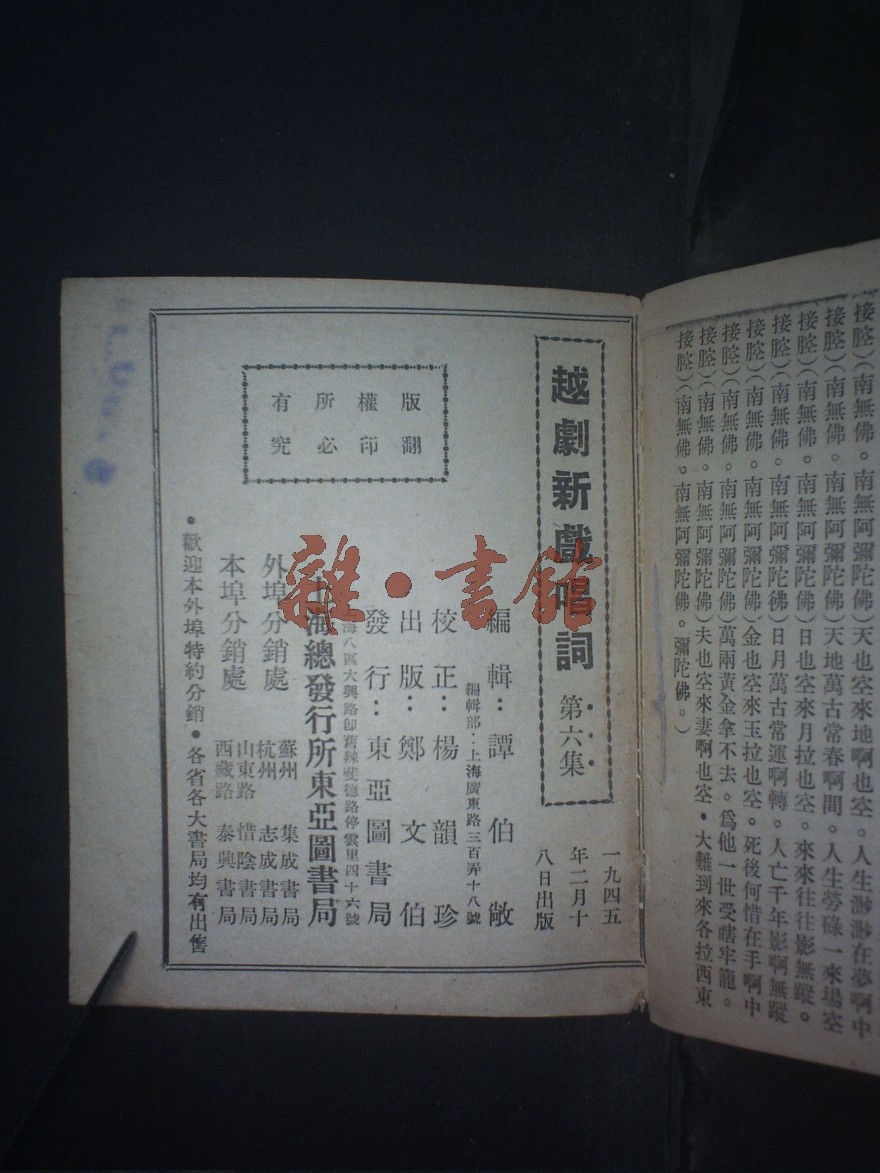 接腔）（南無佛。南無阿彌陀佛）天也空來地啊也空。人生渺渺在夢啊中
接腔）（南無佛。南無阿彌陀佛）天地萬古常春啊間。人生勞碌一來場空
接腔）（南無佛。南無阿彌陀佛）日也空來月拉也空。來來往往影無蹤。
接腔）（南無佛。南無阿彌陀彿）日月萬古常運啊轉。人亡千年影啊無蹤
接腔）（南無佛。南無阿彌陀佛）金也空來玉拉也空。死後何惜在手啊中
接腔）（南無佛。南無阿彌陀佛）萬兩黃金拿不去。爲他一世受瞎牢籠。
接腔）（南無佛。南無阿彌陀佛）夫也空來妻啊也空。大難到來各拉西東
接腔）（南無佛。南無阿彌陀佛。彌陀佛。）
越劇新戲唱詞 第六集
一九四五
年二月十
八日出版
編輯：譚伯敞
編輯部：上海廣東路三百弄十八號
校正：楊韻珍
出版：鄭文伯
發行：東亞圖書局
海八區大興路卽舊辣斐德路停雲里四十六號
上海總發行所東亞圖書局
外埠分銷處
蘇州 集成書局
杭州 志成書局
本埠分銷處
山東路 惜陰書局
西藏路 泰興書局
•歡迎本外埠特約分銷•各省各大書局均有出售
版權所有
翻印必究
雜·書館